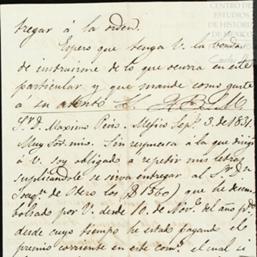 CENTRO DE
ESTUDIOS
DE HISTORIA
DE MEXICO
tregar á la orden.
Espero que tenga V. la bondad
de instruirme de lo que ocurra en este
particular, y que mande como guste
á su atento
Sr. D. Maximo Pino. Mejico Sepe. 3. de 1831.
Muy Sor. mio. Sin respuesta á la que dirigi
á V. soy obligado á repetir mis letras
suplicandole se sirva entregar al Sr. Dn.
Joaqn. de Otero los ($1560) que he desem
bolsado por V. desde 10. de Nove. del año pdo.
desde cuyo tiempo he estado pagando el
premio corriente en este come. el cual